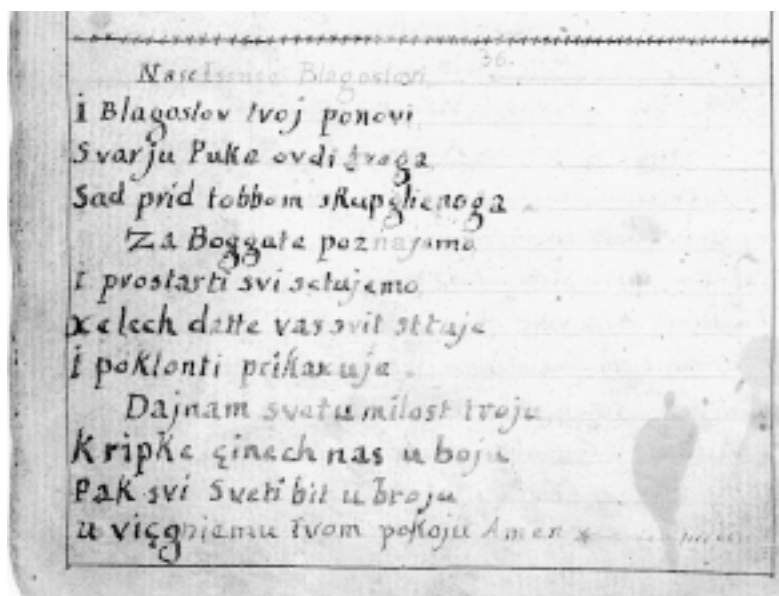 36.
Nas Blagoslovi
i Blagoslov tvoj ponovi
Svarju Puka ovdi
Sad prid tobbom skupghenoga
Za Boggate poznajemo
i prostarti svi setujemo
xelech datte vas svit sttuje
i poklonti prikaxuje
Dajnam svetu milost tvoju
Kripke çinech nas u boju
Pak svi Sveti bit u broju
u viçgniemu tvom pokoju Amen